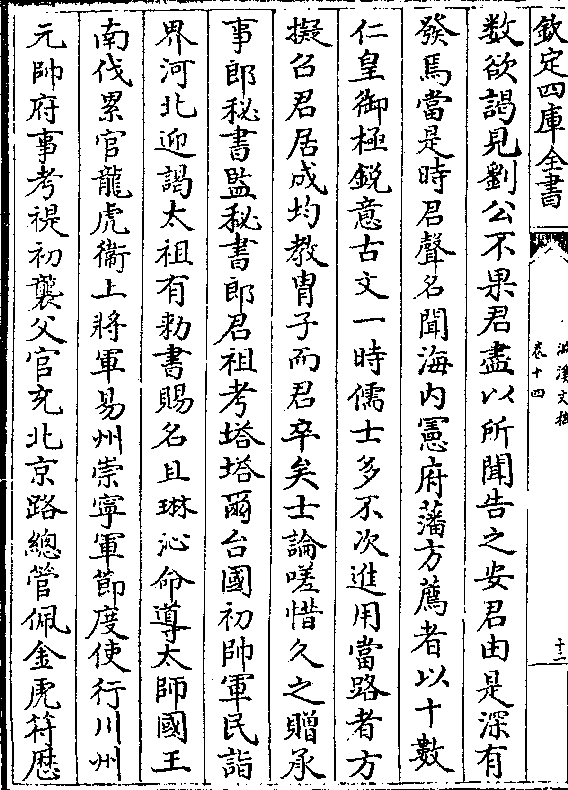 欽定四庫全書
卷十四
十二
数欲謁見劉公不果君盡以所聞告之安君由是深有
發焉當是時君聲名聞海内憲府藩方薦者以十數
仁皇御極銳意古文一時儒士多不次進用當路者方
擬召君居成均教胄子而君卒矣士論嗟惜久之贈承
事郎秘書監秘書郎君祖考塔塔爾台國初帥軍民詣
界河北迎謁太祖有勑書賜名且琳沁命導太師國王
南伐累官龍虎衛上將軍易州崇寧軍節度使行川州
元帥府事考禔初襲父官充北京路總管佩金虎符歴